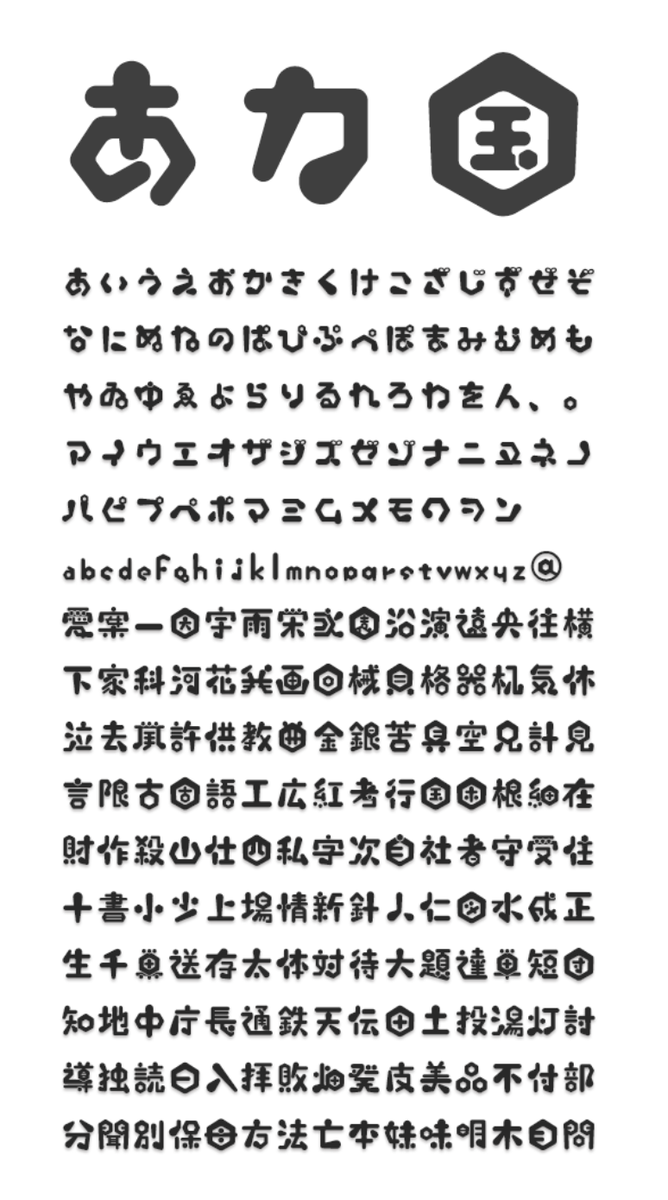 あカ国
あいうえおかきくけこざじずぜぞ
なにぬねのぱぴぷぺぽまみむめも
やゐゆゑよらりるれろわをん、。
アイウエオザジズゼゾナニヌネノ
パピプペポマミムメモワヲン
abcdefghijklmnopqrstvwxyz@
愛案一因宇雨栄園沿演遠央往横
下家科河花画回械貝格器机気休
泣去許供教金銀苦具空兄計見
言限古固語工広紅考行国困根細在
財作殺山仕四私字次自社者守受住
十書小少上場情新針人仁水成正
生千送存太体対待大題達単短団
知地中庁長通鉄天伝田土投湯灯討
導独読日入拝敗畑発皮美品不付部
分聞別保母方法亡本妹味明木目問